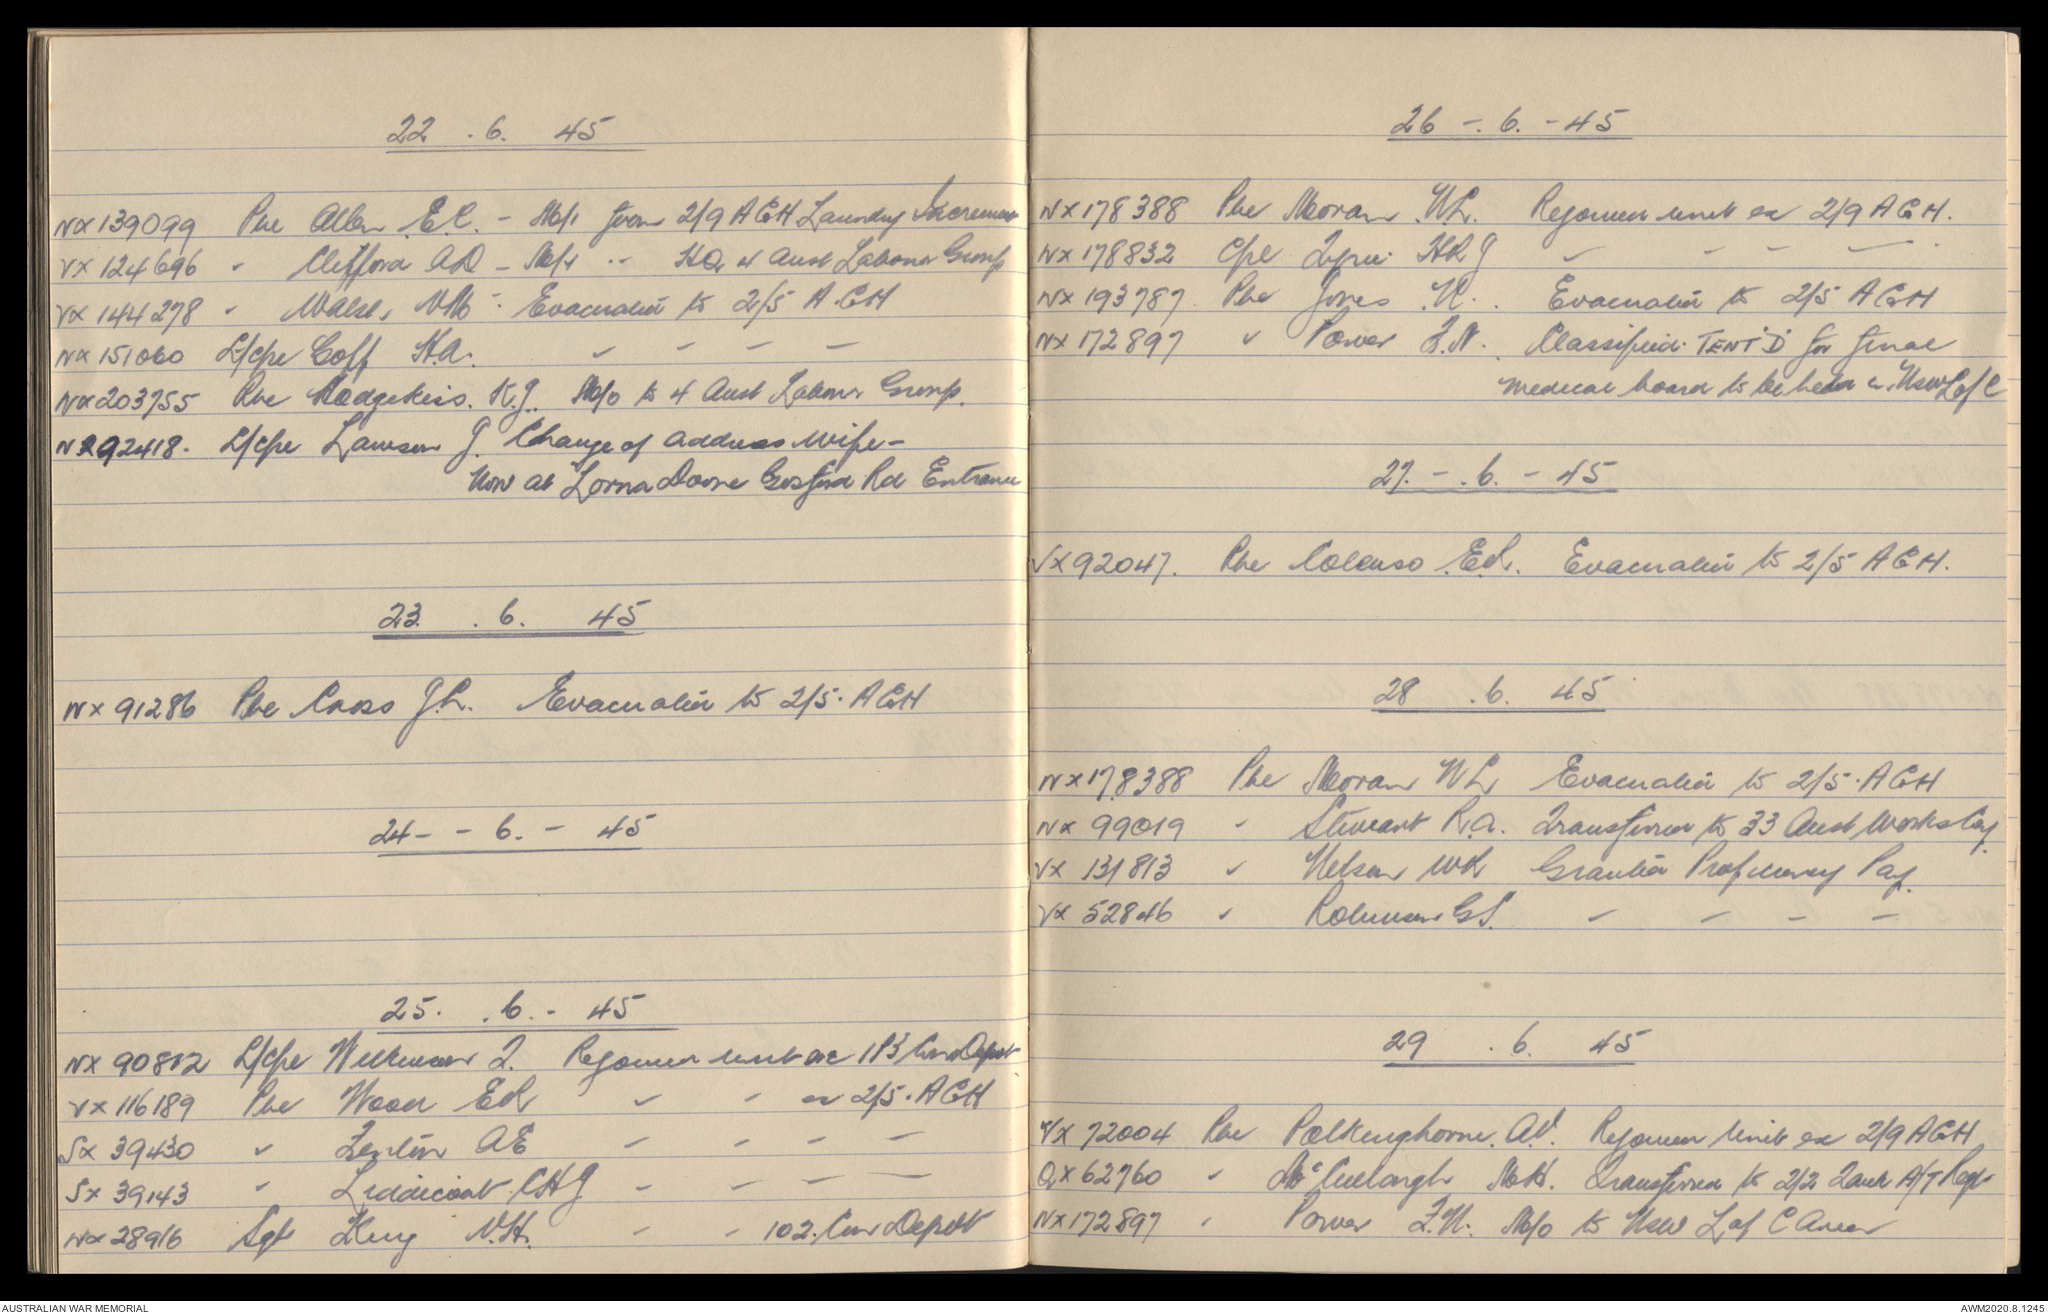 22 . 6. 45
NX139099 Pte Allen E.C. - M/I from 2/9 AGH Laundry Increment
VX124696 " Clifford A D - M/I " HQ 4 Aust Labour Group
VX144278 " Walsh VM - Evacuated to 2/5 A.G.H
NX151060 L/Cpl Goff H.A. " - - -
NX203755 Pte Hodgekiss. K.J. M/O to 4 Aust Labour Group.
NX92418. L/Cpl Lawson J. Change of address Wife -
Now at Lorna Doone Gosford Rd Entrance
23 . 6. 45
NX91286 Pte Cross J.L. Evacuated to 2/5. AGH
24 - - 6. - 45
25. . 6. - 45
NX90812 L/Cpl Wilkinson L. Rejoined unit ex 113 Con Depot
VX116189 Pte Wood E R " " ex 2/5. AGH
SX39430 " Fenton AE - - - -
SX39143 " Liddicoat CHJ - - - -
NX28916 Sgt King V.H. - - 102. Con Depot
26 -. 6. - 45
NX178388 Pte Moran W L. Rejoined unit ex 2/9 A G H.
NX178832 Cpl HRJ " - - -
NX193787 Pte Jones N. Evacuated to 2/5 A G H
NX172897 " Power F.N. Classified TENT 'D' for final
medical board to be held in NSW L of C
27. - . 6. - 45
VX92047. Pte Colenso E.R. Evacuated to 2/5 A G H.
28 . 6. 45
NX178388 Pte Moran W L Evacuated to 2/5. A G H
NX99019 " Stewart R.A. Transferred to 33 Aust Works Coy.
VX131813 " Nelson WR Granted Proficiency Pay.
VX52846 " Robinson G S. - - - -
29 . 6. 45
VX72004 Pte Polkenghorne. A.V. Rejoined Unit ex 2/9 A G H
QX62760 " McCullough M.H. Transferred to 2/2 Tank A/T Regt
NX172897 " Power F.N. M/O to NSW L of C Area
AUSTRALIAN WAR MEMORIAL
AWM2020.8.1245